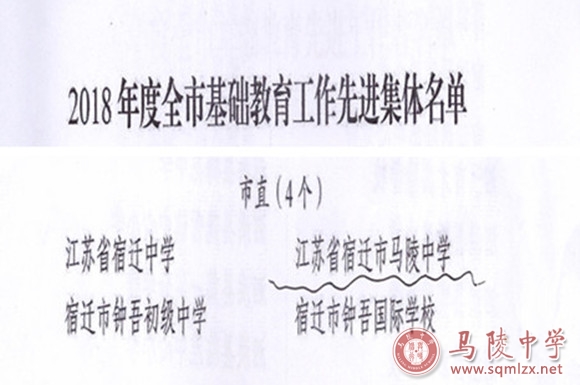 2018年度全市基础教育工作先进集体名单
市直(4个)
江苏省宿迁中学 江苏省宿迁市马陵中学
宿迁市钟吾初级中学 宿迁市钟吾国际学校
马陵中学
www.sqmlzx.net